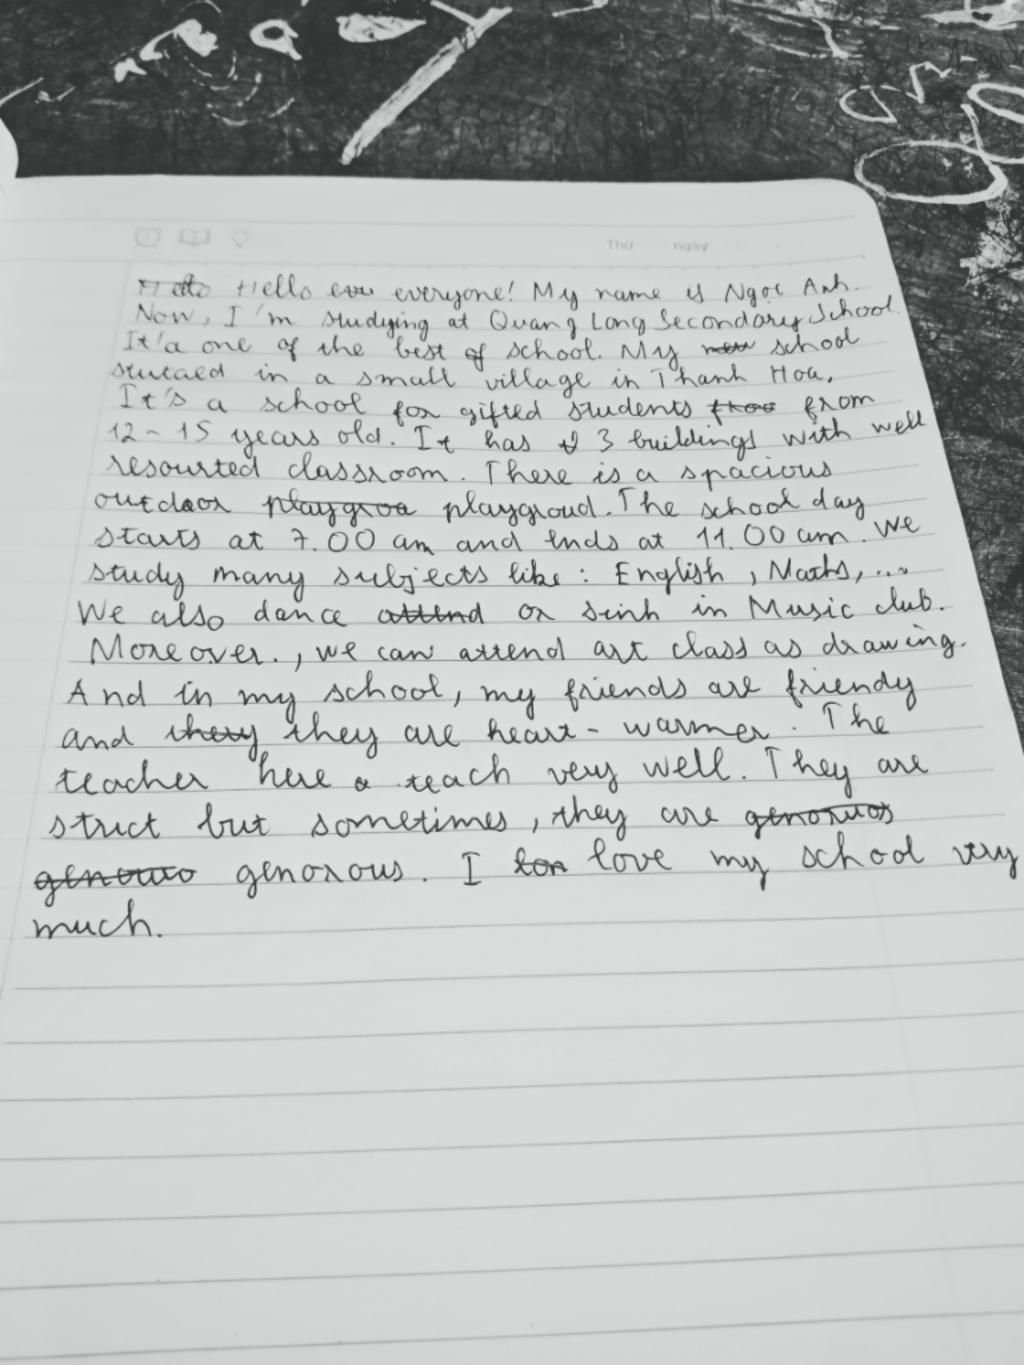 Thứ ngày
Hello everyone! My name is Ngọc Anh.
Now, I'm studying at Quang Long Secondary School.
It'a one of the best of school. My school
stutaed in a small village in Thanh Hoa.
It's a school for gifted students from
12 - 15 years old. It has 3 buildings with well
resourted classroom. There is a spacious
outdoor playgroud. The school day
starts at 7.00 am and ends at 11.00 am. We
study many subjects like: English, Maths,...
We also dance or sinh in Music club.
Moreover., we can attend art class as drawing.
And in my school, my friends are friendy
and they are heart - warmer. The
teacher here teach very well. They are
strict but sometimes, they are
genorous. I love my school very
much.